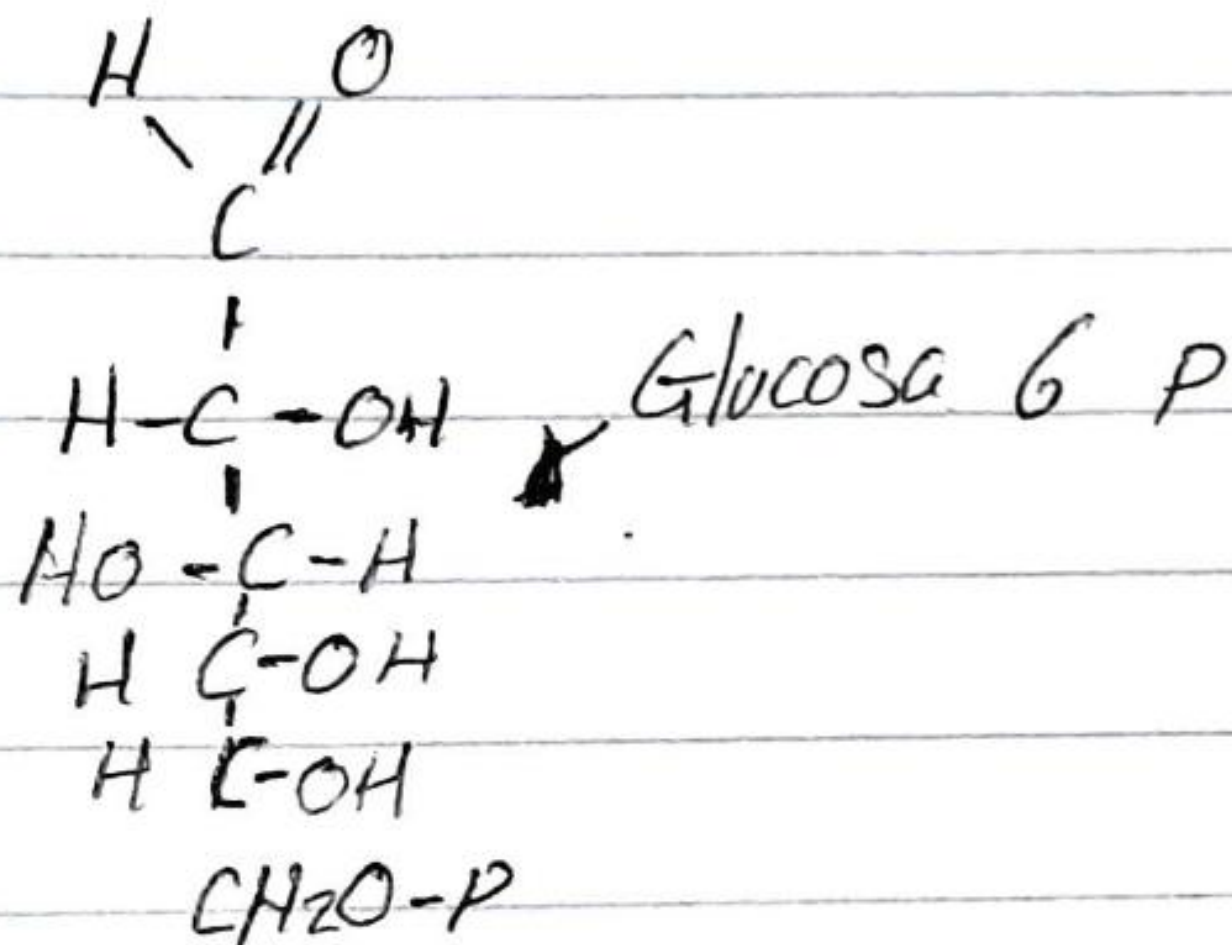 H O
\ //
C
|
H-C-OH Glucosa 6 P
|
HO-C-H
|
H C-OH
|
H C-OH
CH2O-P